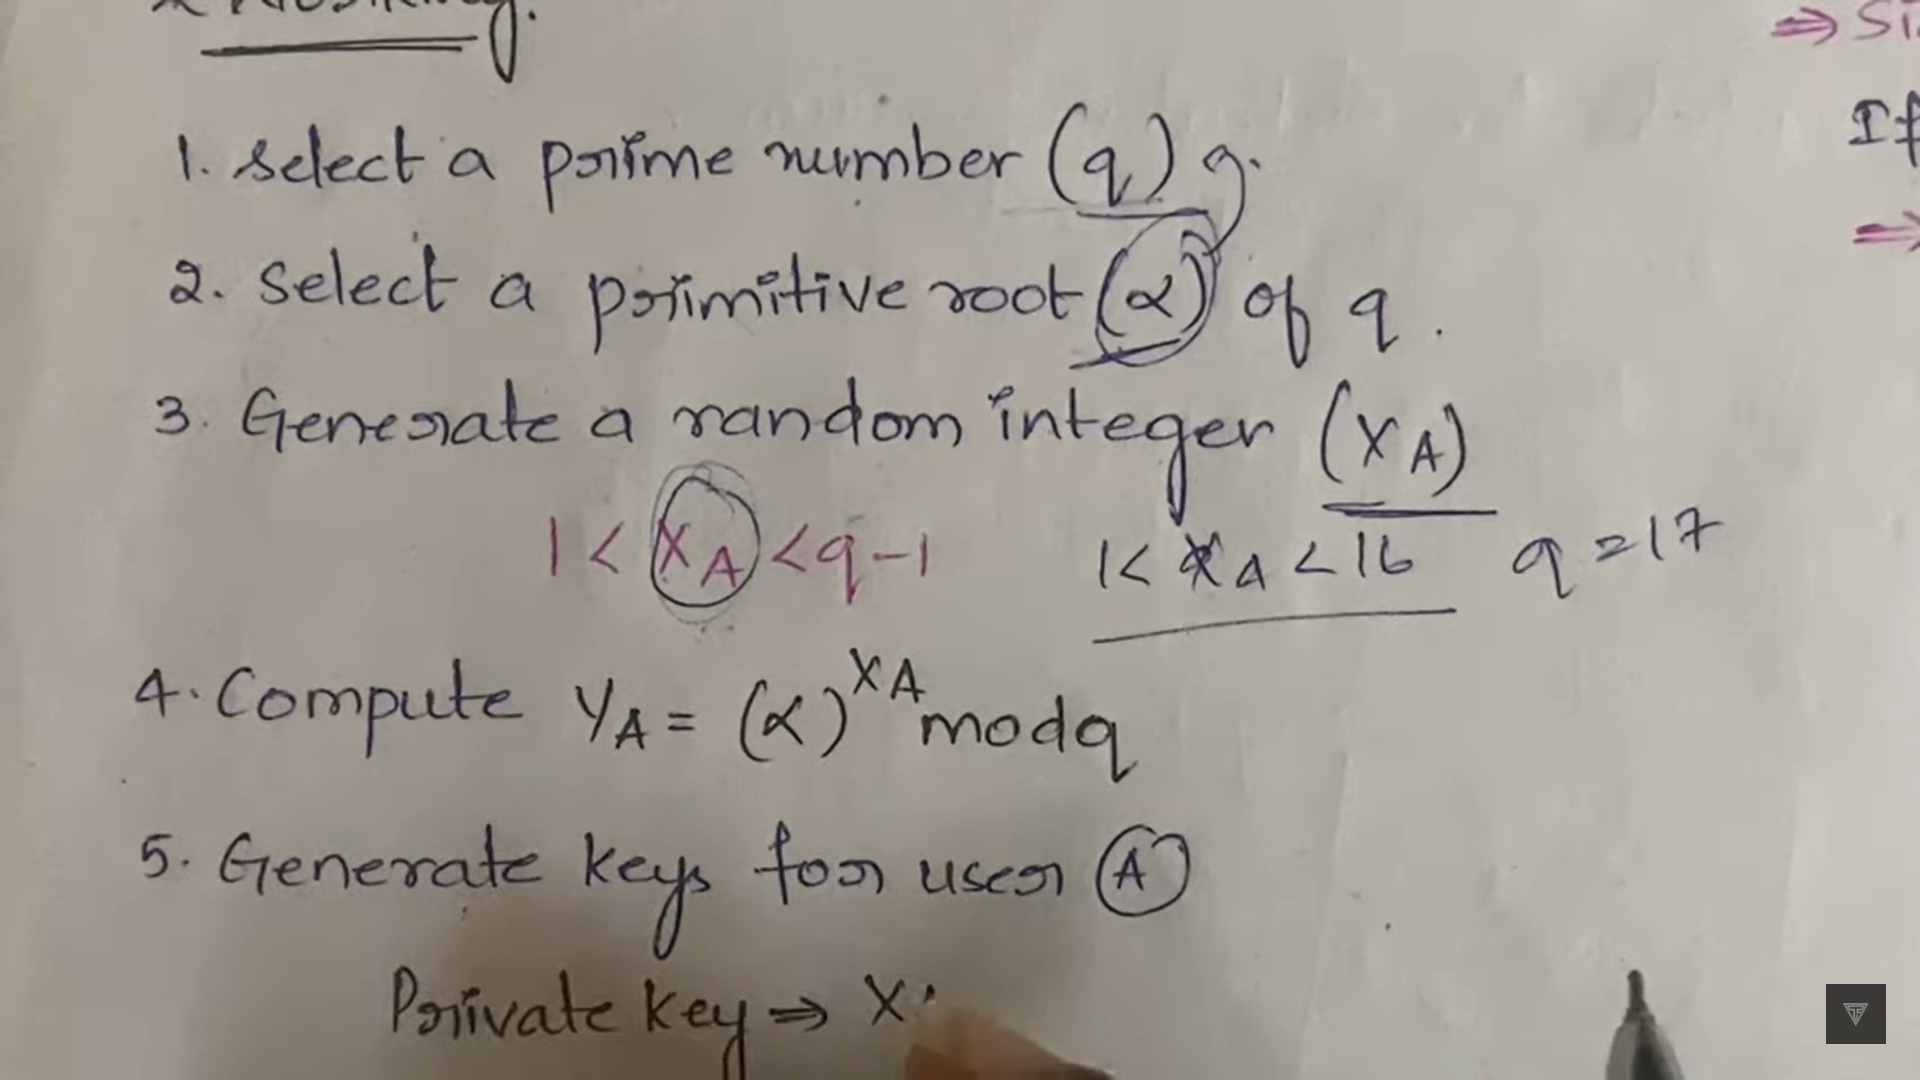 ⇒ Si
1. Select a prime number (q) g.
If
2. Select a primitive root (α) of q.
3. Generate a random integer (XA)
1 < XA < q-1    1 < XA < 16    q = 17
4. Compute YA = (α)^XA mod q
5. Generate keys for user A
Private key ⇒ X